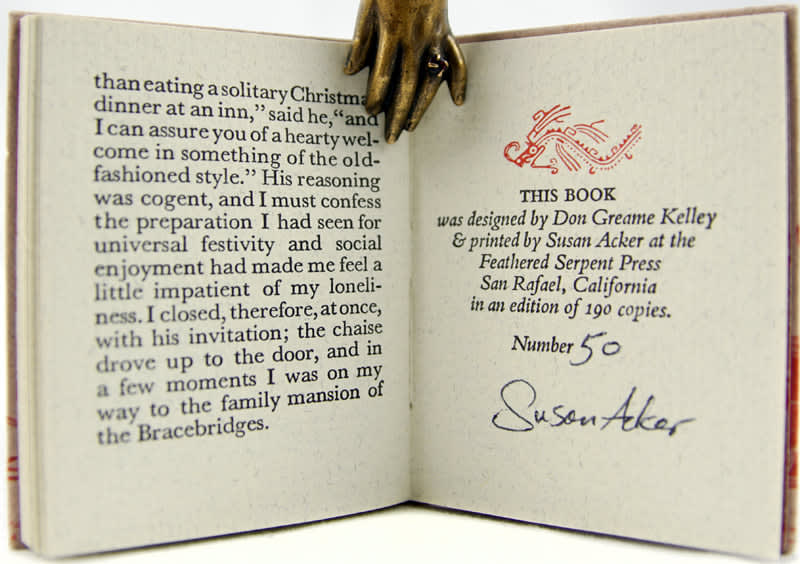 than eating a solitary Christma
dinner at an inn,” said he, “and
I can assure you of a hearty wel-
come in something of the old-
fashioned style.” His reasoning
was cogent, and I must confess
the preparation I had seen for
universal festivity and social
enjoyment had made me feel a
little impatient of my loneli-
ness. I closed, therefore, at once,
with his invitation; the chaise
drove up to the door, and in
a few moments I was on my
way to the family mansion of
the Bracebridges.
THIS BOOK
was designed by Don Greame Kelley
& printed by Susan Acker at the
Feathered Serpent Press
San Rafael, California
in an edition of 190 copies.
Number 50
Susan Acker